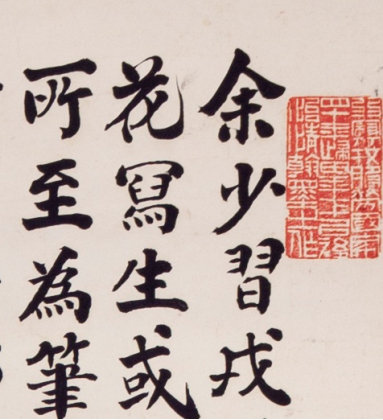 余少習戎
花寫生或
所至為筆